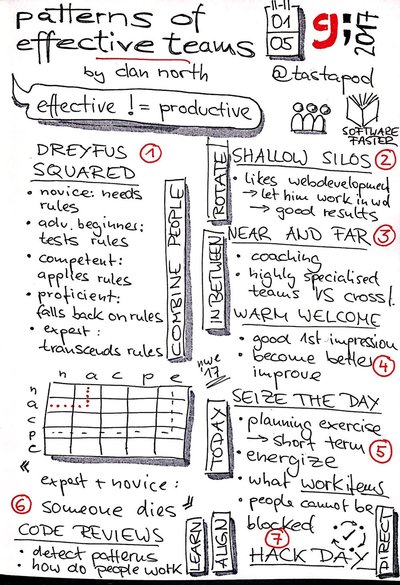 patterns of
effective teams
by dan north
11-11
01
05
g;
2017
@tastapod
effective != productive
SOFTWARE
FASTER
DREYFUS ①
SQUARED
• novice: needs
rules
• adv. beginner:
tests rules
• competent:
applies rules
• proficient:
falls back on rules
• expert:
transcends rules
COMBINE PEOPLE
n a c p e
n
a
c
p
e
nwe
'17
"expert + novice:
⑥ someone dies"
CODE REVIEWS
• detect patterns
• how do people work
LEARN
ROTATE
SHALLOW SILOS ②
• likes webdevelopment
→ let him work in wd
→ good results
IN BETWEEN
NEAR AND FAR ③
• coaching
• highly specialised
teams VS cross/.
WARM WELCOME
• good 1st impression
• become better ④
improve
TODAY
SEIZE THE DAY
• planning exercise
→ short term ⑤
• energize
• what workitems
• people cannot be
blocked
ALIGN
⑦
HACK DAY
DIRECT